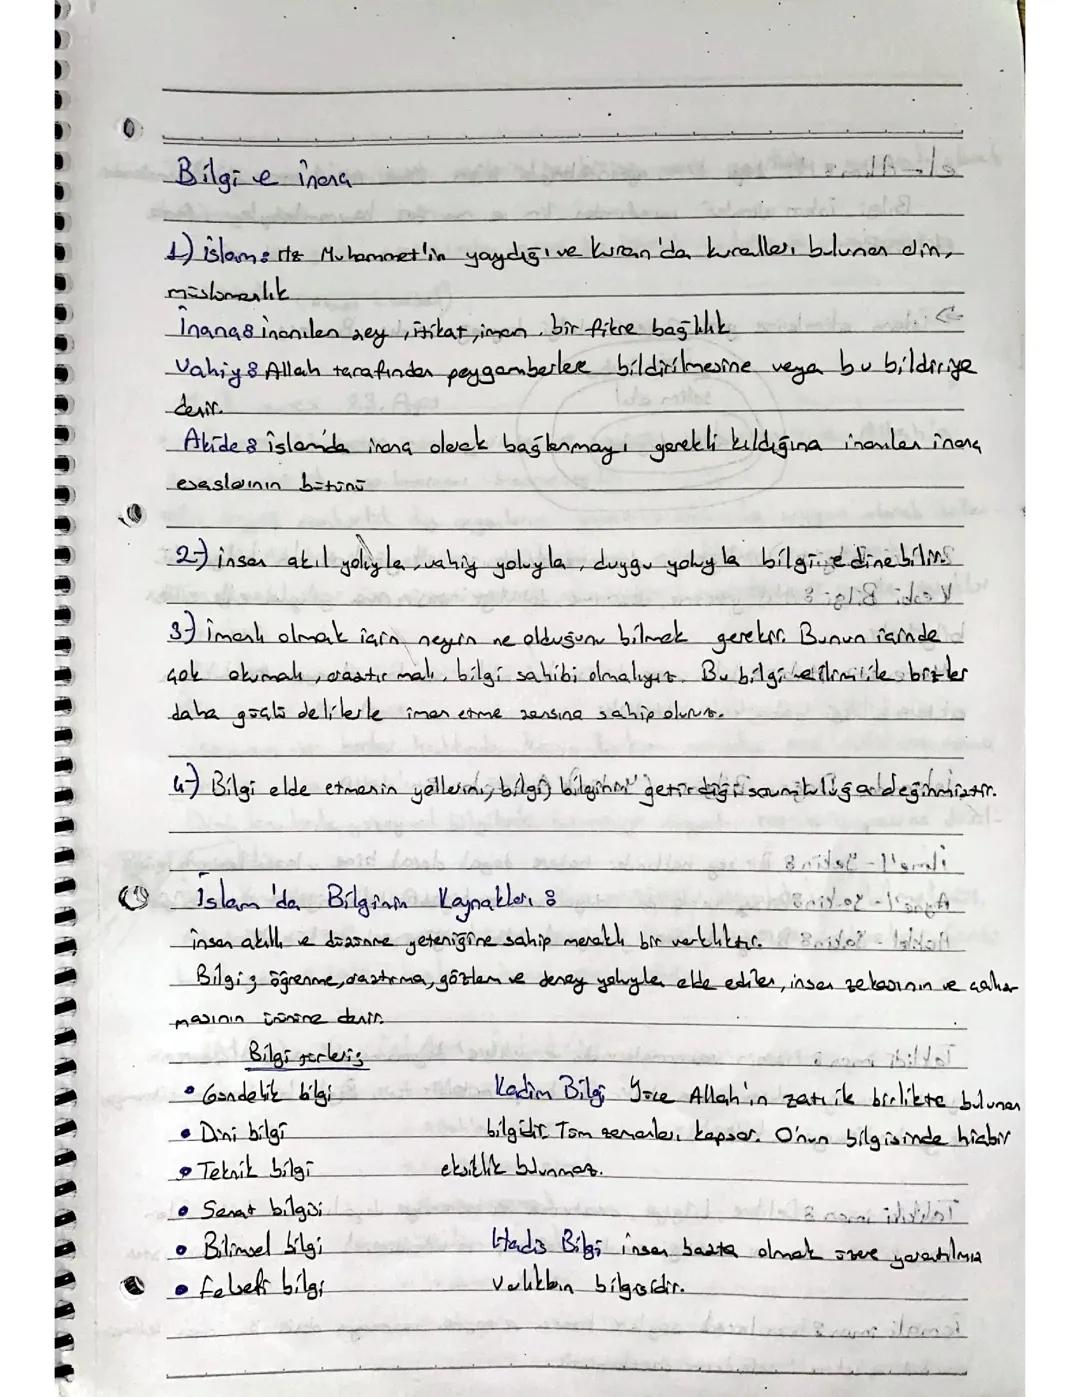 Bilgi ve inanç
1) İslam: Hz Muhammet'in yaydığı ve Kuran'da kuralları bulunan din,
müslümanlık
İnanç: inanılan şey, itikat, iman, bir fikre bağlılık
Vahiy: Allah tarafından peygamberlere bildirilmesine veya bu bildiriye
denir.
Akide: İslam'da inanç olarak bağlanmayı gerekli kıldığına inanılan inanç
esaslarının bütünü
2-) insan akıl yoluyla, vahiy yoluyla, duygu yoluyla bilgi edinebilir.
3-) imanlı olmak için neyin ne olduğunu bilmek gerekir. Bunun içinde
çok okumalı, araştırmalı, bilgi sahibi olmalıyız. Bu bilgi ile bizler
daha güçlü delillerle iman etme şansına sahip oluruz.
4-) Bilgi elde etmenin yollarını, bilgi) bilginin getirdiği sorumluluğa değinmiştir.
İslam'da Bilginin Kaynakları:
insan akıllı ve düşünme yeteneğine sahip meraklı bir varlıktır.
Bilgi; öğrenme, araştırma, gözlem ve deney yoluyla elde edilen, insan zekasının ve çalış-
masının ürününe denir.
Bilgi türleri;
• Gündelik bilgi
• Dini bilgi
• Teknik bilgi
• Sanat bilgisi
• Bilimsel bilgi
• Felsefi bilgi
Kadim Bilgi Yüce Allah'ın zatı ile birlikte bulunan
bilgidir. Tüm zamanları kapsar. O'nun bilgisinde hiçbir
eksiklik bulunmaz.
Hadis Bilgi insan başta olmak üzere yaratılmış
Varlıkların bilgisidir.